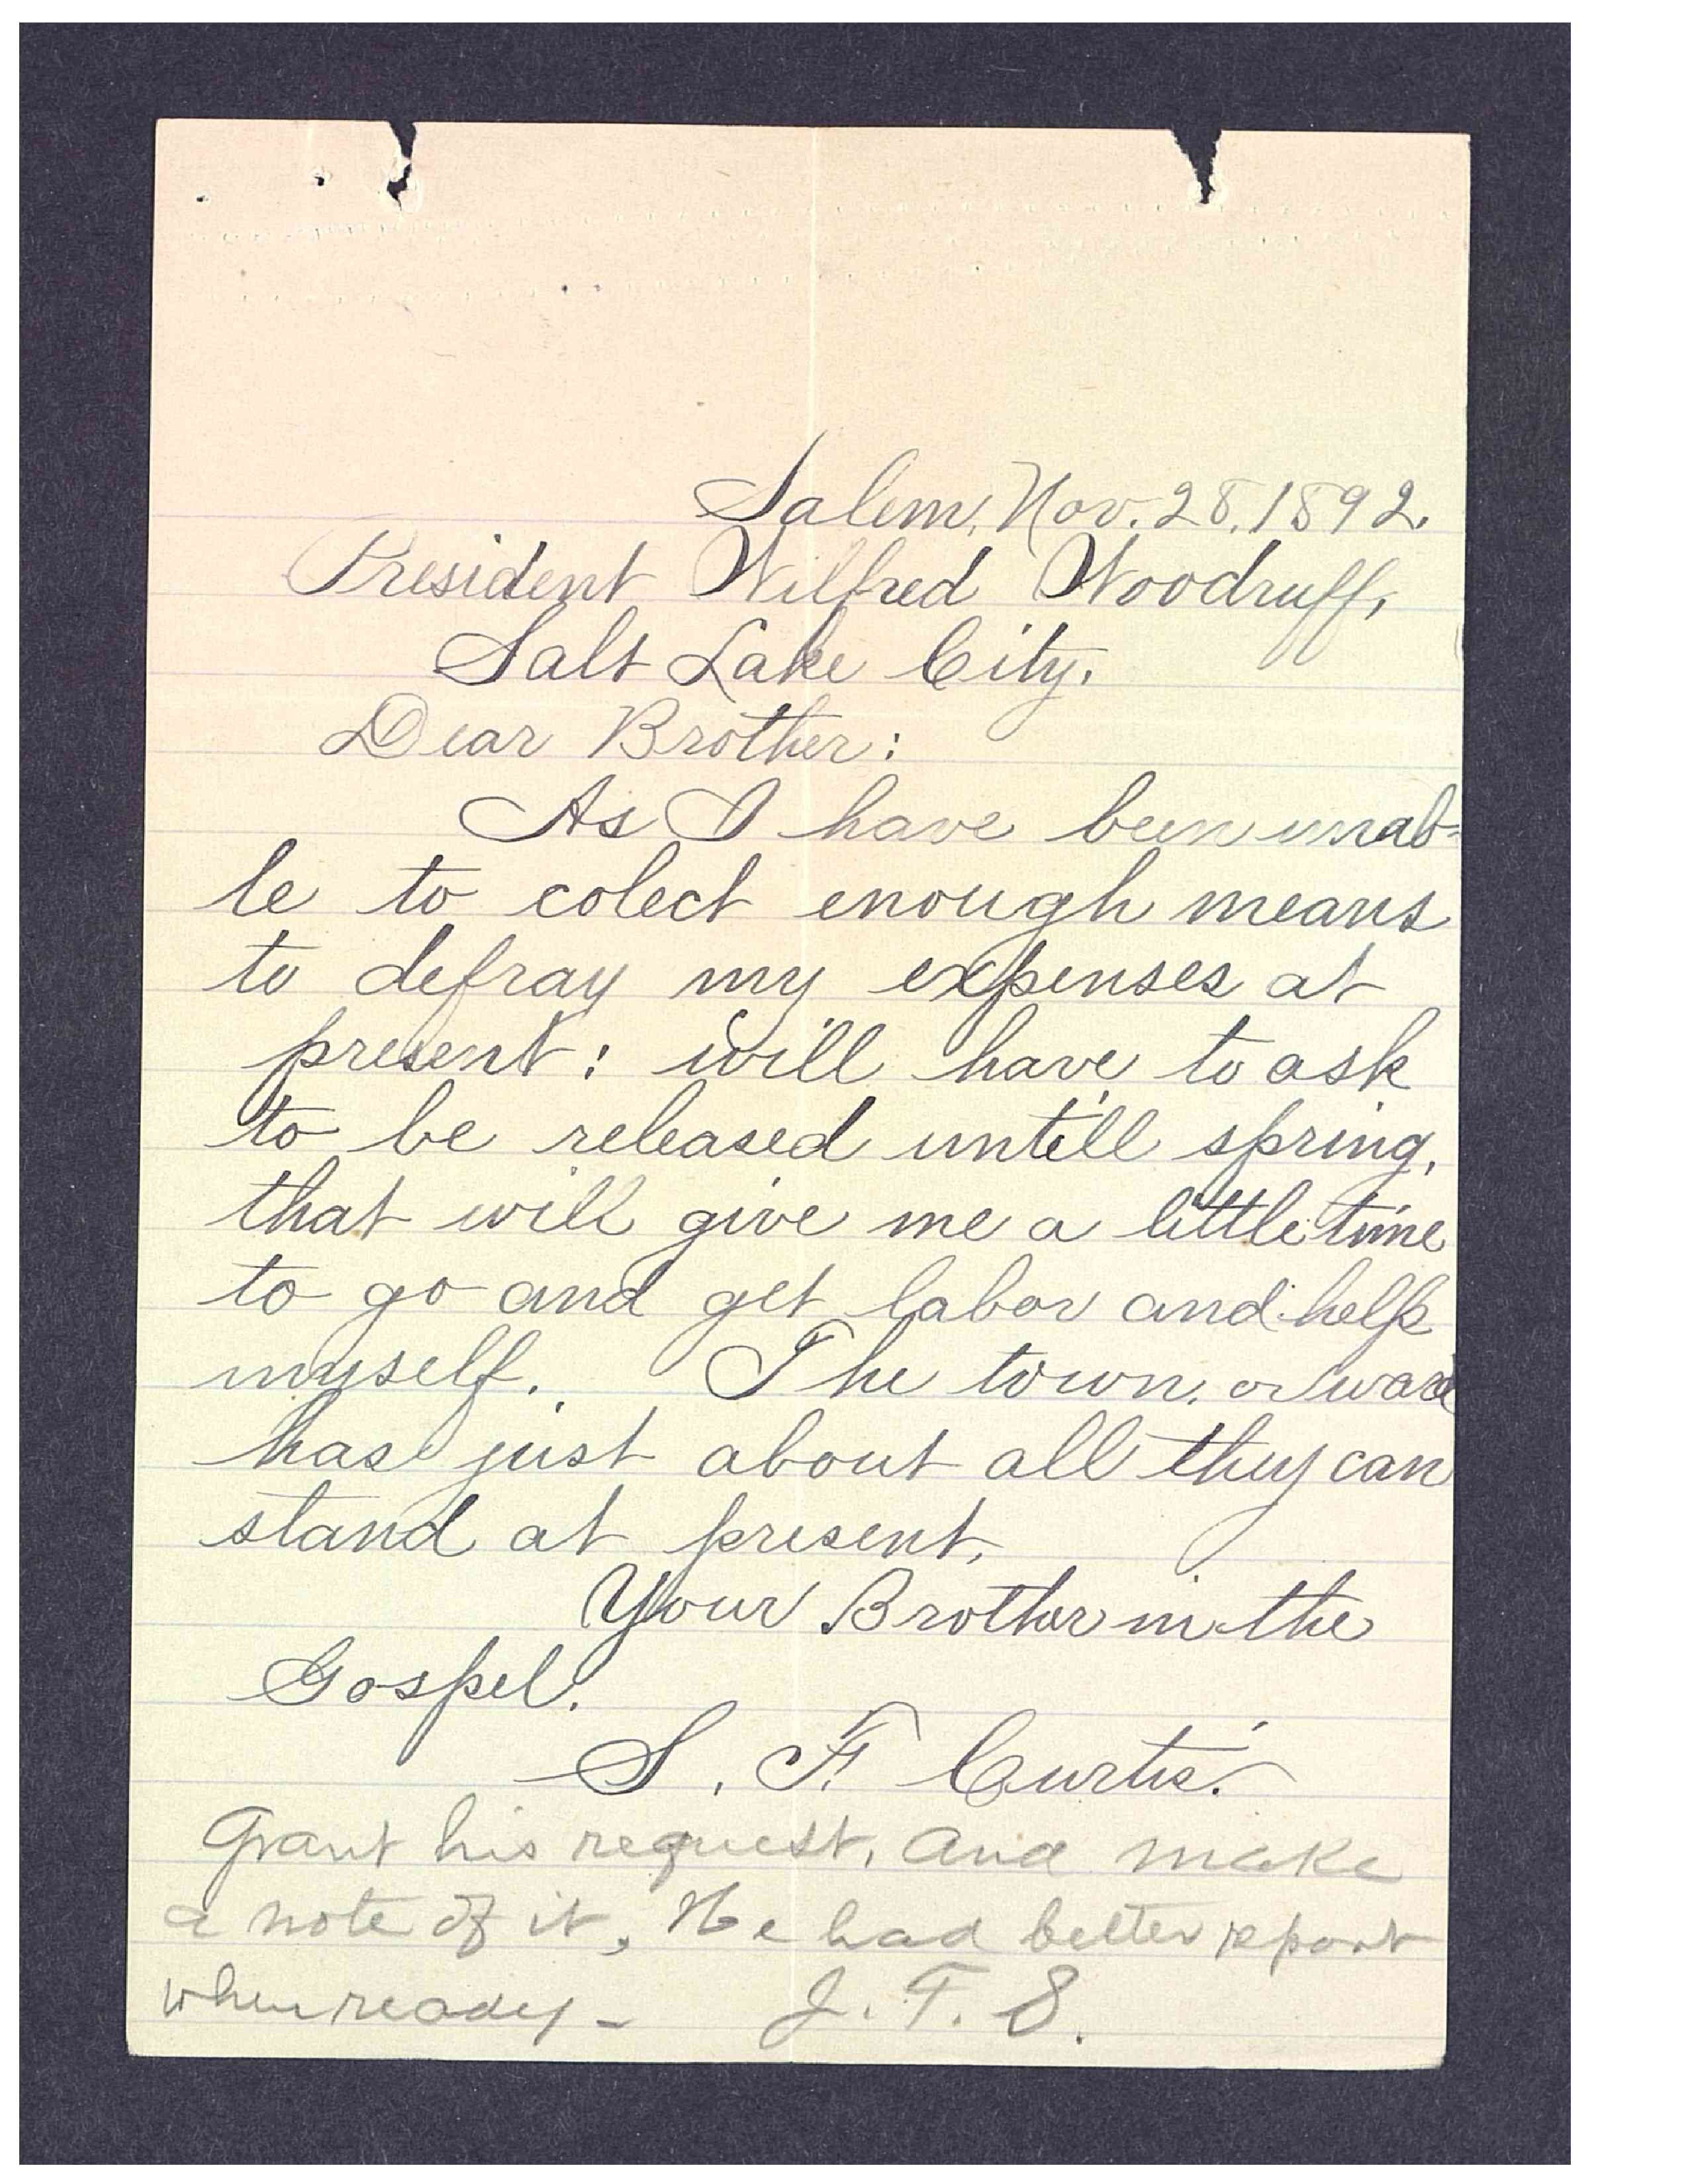 Salem, Nov. 28, 1892.
President Wilfred Woodruff,
Salt Lake City.
Dear Brother:
As I have been unab-
le to colect enough means
to defray my expenses at
present: will have to ask
to be released untill spring,
that will give me a little time
to go and get labor and help
myself. The town, or ward
has just about all they can
stand at present.
Your Brother in the
Gospel.
S. F. Curtis.
Grant his request, and make
a note of it, He had better report
when ready - J. F. S.